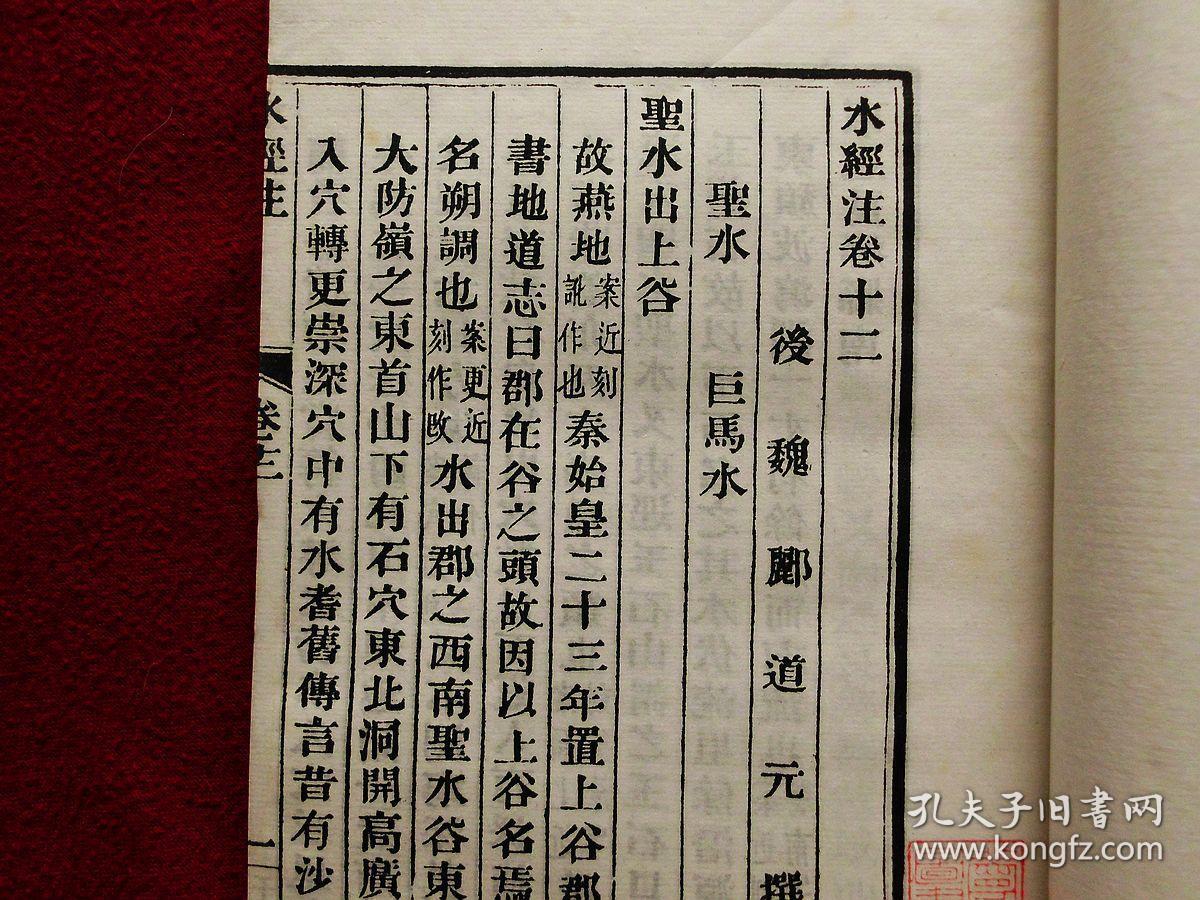 水經注卷十二
後魏酈道元撰
聖水　巨馬水
聖水出上谷
故燕地案近刻訛作也秦始皇二十三年置上谷郡
書地道志曰郡在谷之頭故因以上谷名焉
名朔調也案更近刻作改水出郡之西南聖水谷東
大防嶺之東首山下有石穴東北洞開高廣
入穴轉更崇深穴中有水耆舊傳言昔有沙
水經注
卷十二
一
孔夫子旧书网
www.kongfz.com